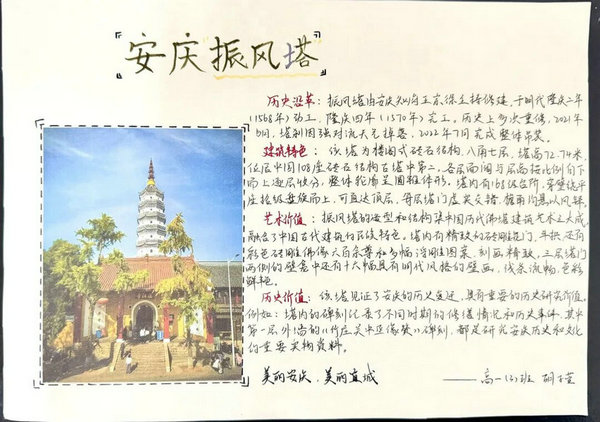 安庆振风塔
历史沿革：振风塔由安庆知府王宗徐主持修建，于明代隆庆二年
（1568年）动工，隆庆四年（1570年）完工。历史上多次重修，2021年
6月，塔刹因强对流天气掉落，2022年7月完成整体吊装。
建筑特色：该塔为楼阁式砖石结构，八角七层，塔高72.74米，
位居中国108座砖石结构古塔中第二。各层面阔与层高按比例自下
而上逐层收分，整体轮廓呈圆锥体形。塔内有168级台阶，穿壁绕平
座拾级盘旋而上，可直达顶层，每层塔门虚实交错，
艺术价值：振风塔的造型和结构集中国历代佛塔建筑艺术之大成，
融合了中国古代建筑的民族特色。塔内有精致的砖雕花门、斗拱，还有
彩色砖雕佛像六百余尊和多幅浮雕图案，刻画精致，三层塔门
两侧的壁龛中还有十六幅具有明代风格的壁画，线条流畅，色彩
鲜艳。
历史价值：该塔见证了安庆的历史变迁，具有重要的历史研究价值。
例如：塔内的碑刻记录了不同时期的修缮情况和历史事件，其中
第一层外墙的碑刻，都是研究安庆历史和文化
的重要实物资料。
美丽安庆，美丽宜城
——高一（3）班